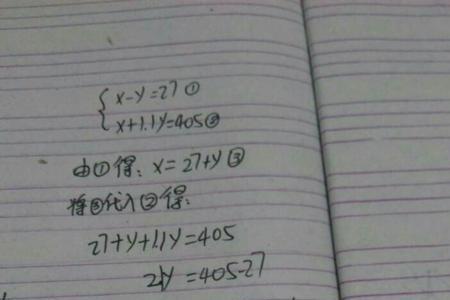 x-y=27①
x+1.1y=405②
由①得：x=27+y③
将③代入②得：
27+y+1.1y=405
2.1y=405-27